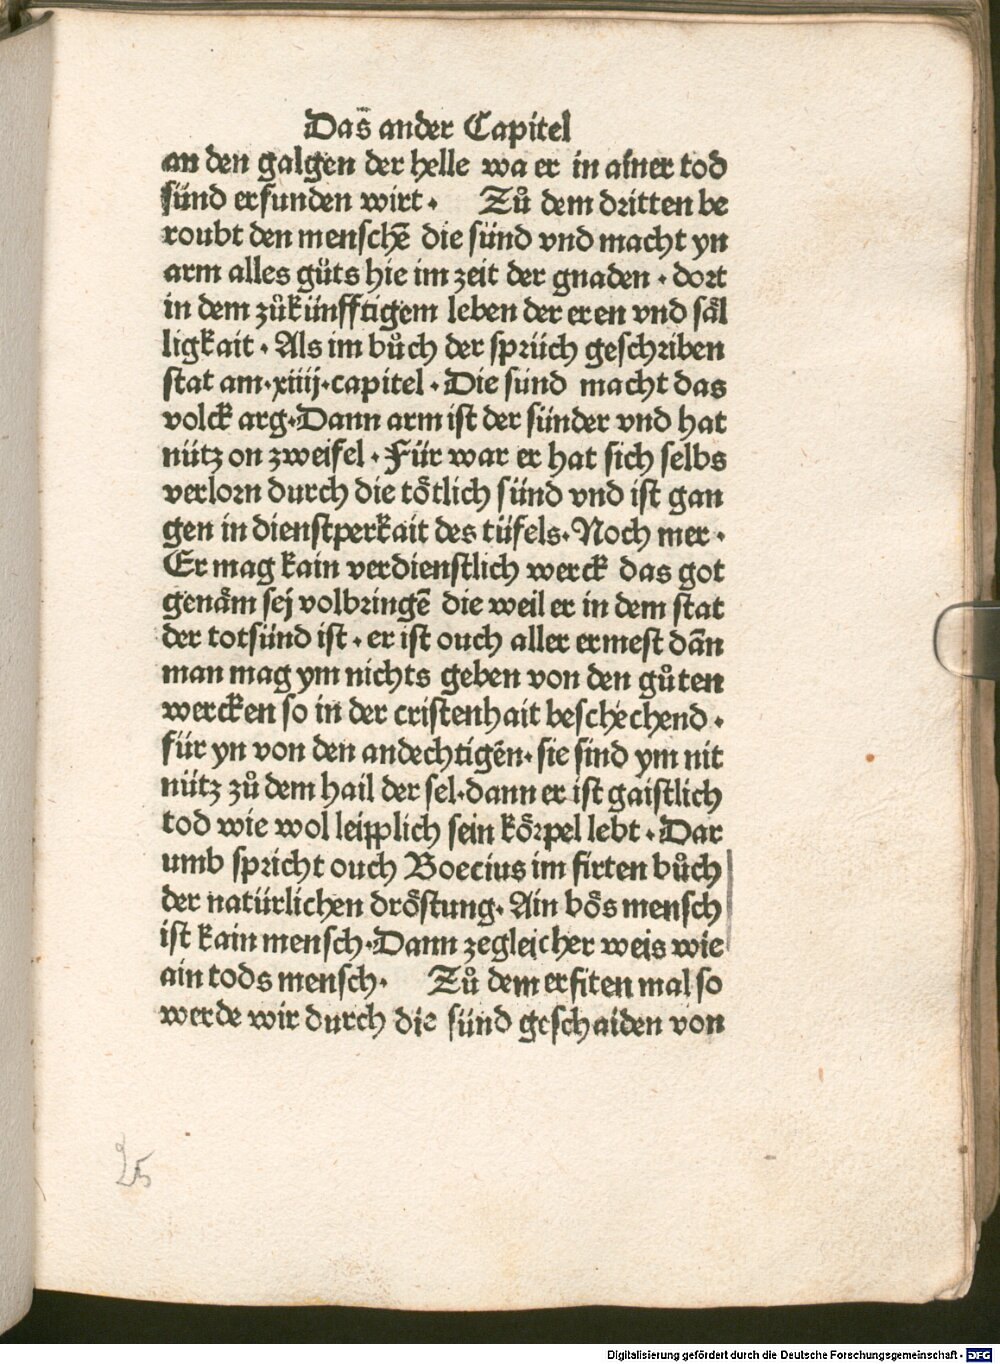 Das ander Capitel
an den galgen der helle wa er in ainer tod
sünd erfunden wirt · Zů dem dritten be
roubt den menschē die sünd vnd macht yn
arm alles gůts hie im zeit der gnaden · dort
in dem zůkünfftigem leben der eren vnd säl
ligkait · Als im bůch der sprüch geschriben
stat am·xiiij·capitel · Die sünd macht das
volck arg·Dann arm ist der sünder vnd hat
nütz on zweifel · Für war er hat sich selbs
verlorn durch die tötlich sünd vnd ist gan
gen in dienstperkait des tüfels·Noch mer ·
Er mag kain verdienstlich werck das got
genäm sej volbringē die weil er in dem stat
der totsünd ist · er ist ouch aller ermest dān
man mag ym nichts geben von den gůten
wercken so in der cristenhait beschechend ·
für yn von den andechtigēn· sie sind ym nit
nütz zů dem hail der sel·dann er ist gaistlich
tod wie wol leipplich sein körpel lebt · Dar
umb spricht ouch Boecius im firten bůch
der natürlichen dröstung· Ain bös mensch
ist kain mensch·Dann zegleicher weis wie
ain tods mensch· Zů dem erfiten mal so
werde wir durch die sünd geschaiden von
25
Digitalisierung gefördert durch die Deutsche Forschungsgemeinschaft - DFG